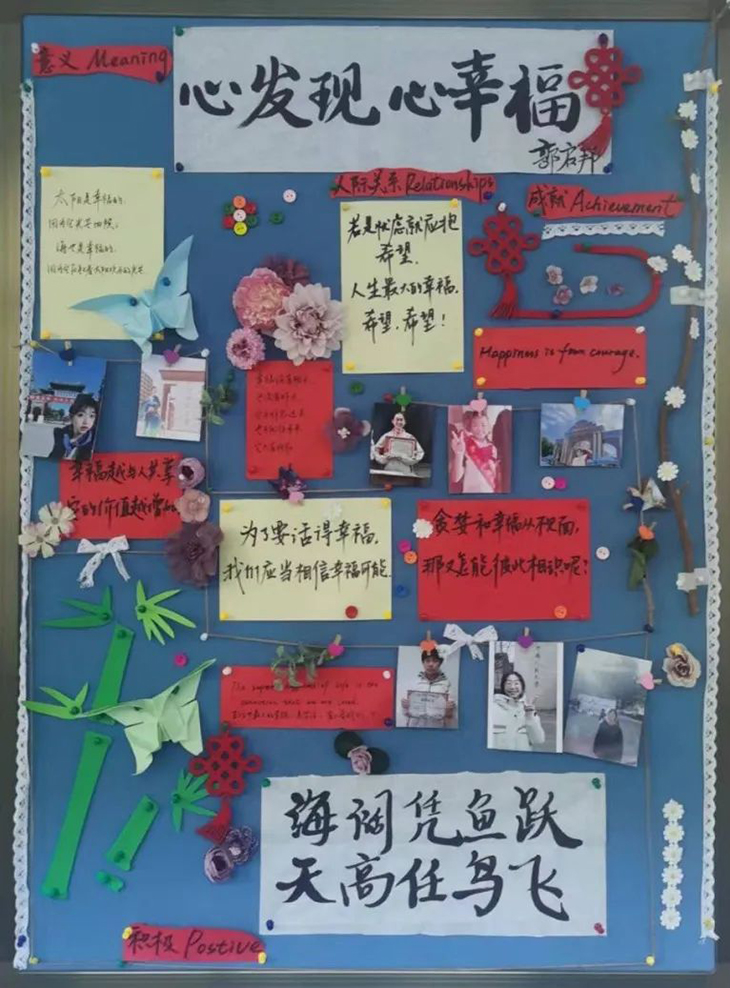 意义 Meaning
心发现 心幸福
郭启邦
人际关系 Relationships
成就 Achievement
太阳是幸福的,
因为它光芒四照;
海也是幸福的,
因为它反射着太阳欢乐的光芒
若是忧虑就应抱
希望,
人生最大的幸福,
希望,希望!
Happiness is from courage.
幸福越与人共享
它的价值越增加
为了要活得幸福,
我们应当相信幸福可能
贪婪和幸福从不见面,
那又怎能彼此相识呢?
The supreme of life is the
conviction that we are loved.
海阔凭鱼跃
天高任鸟飞
积极 Postive